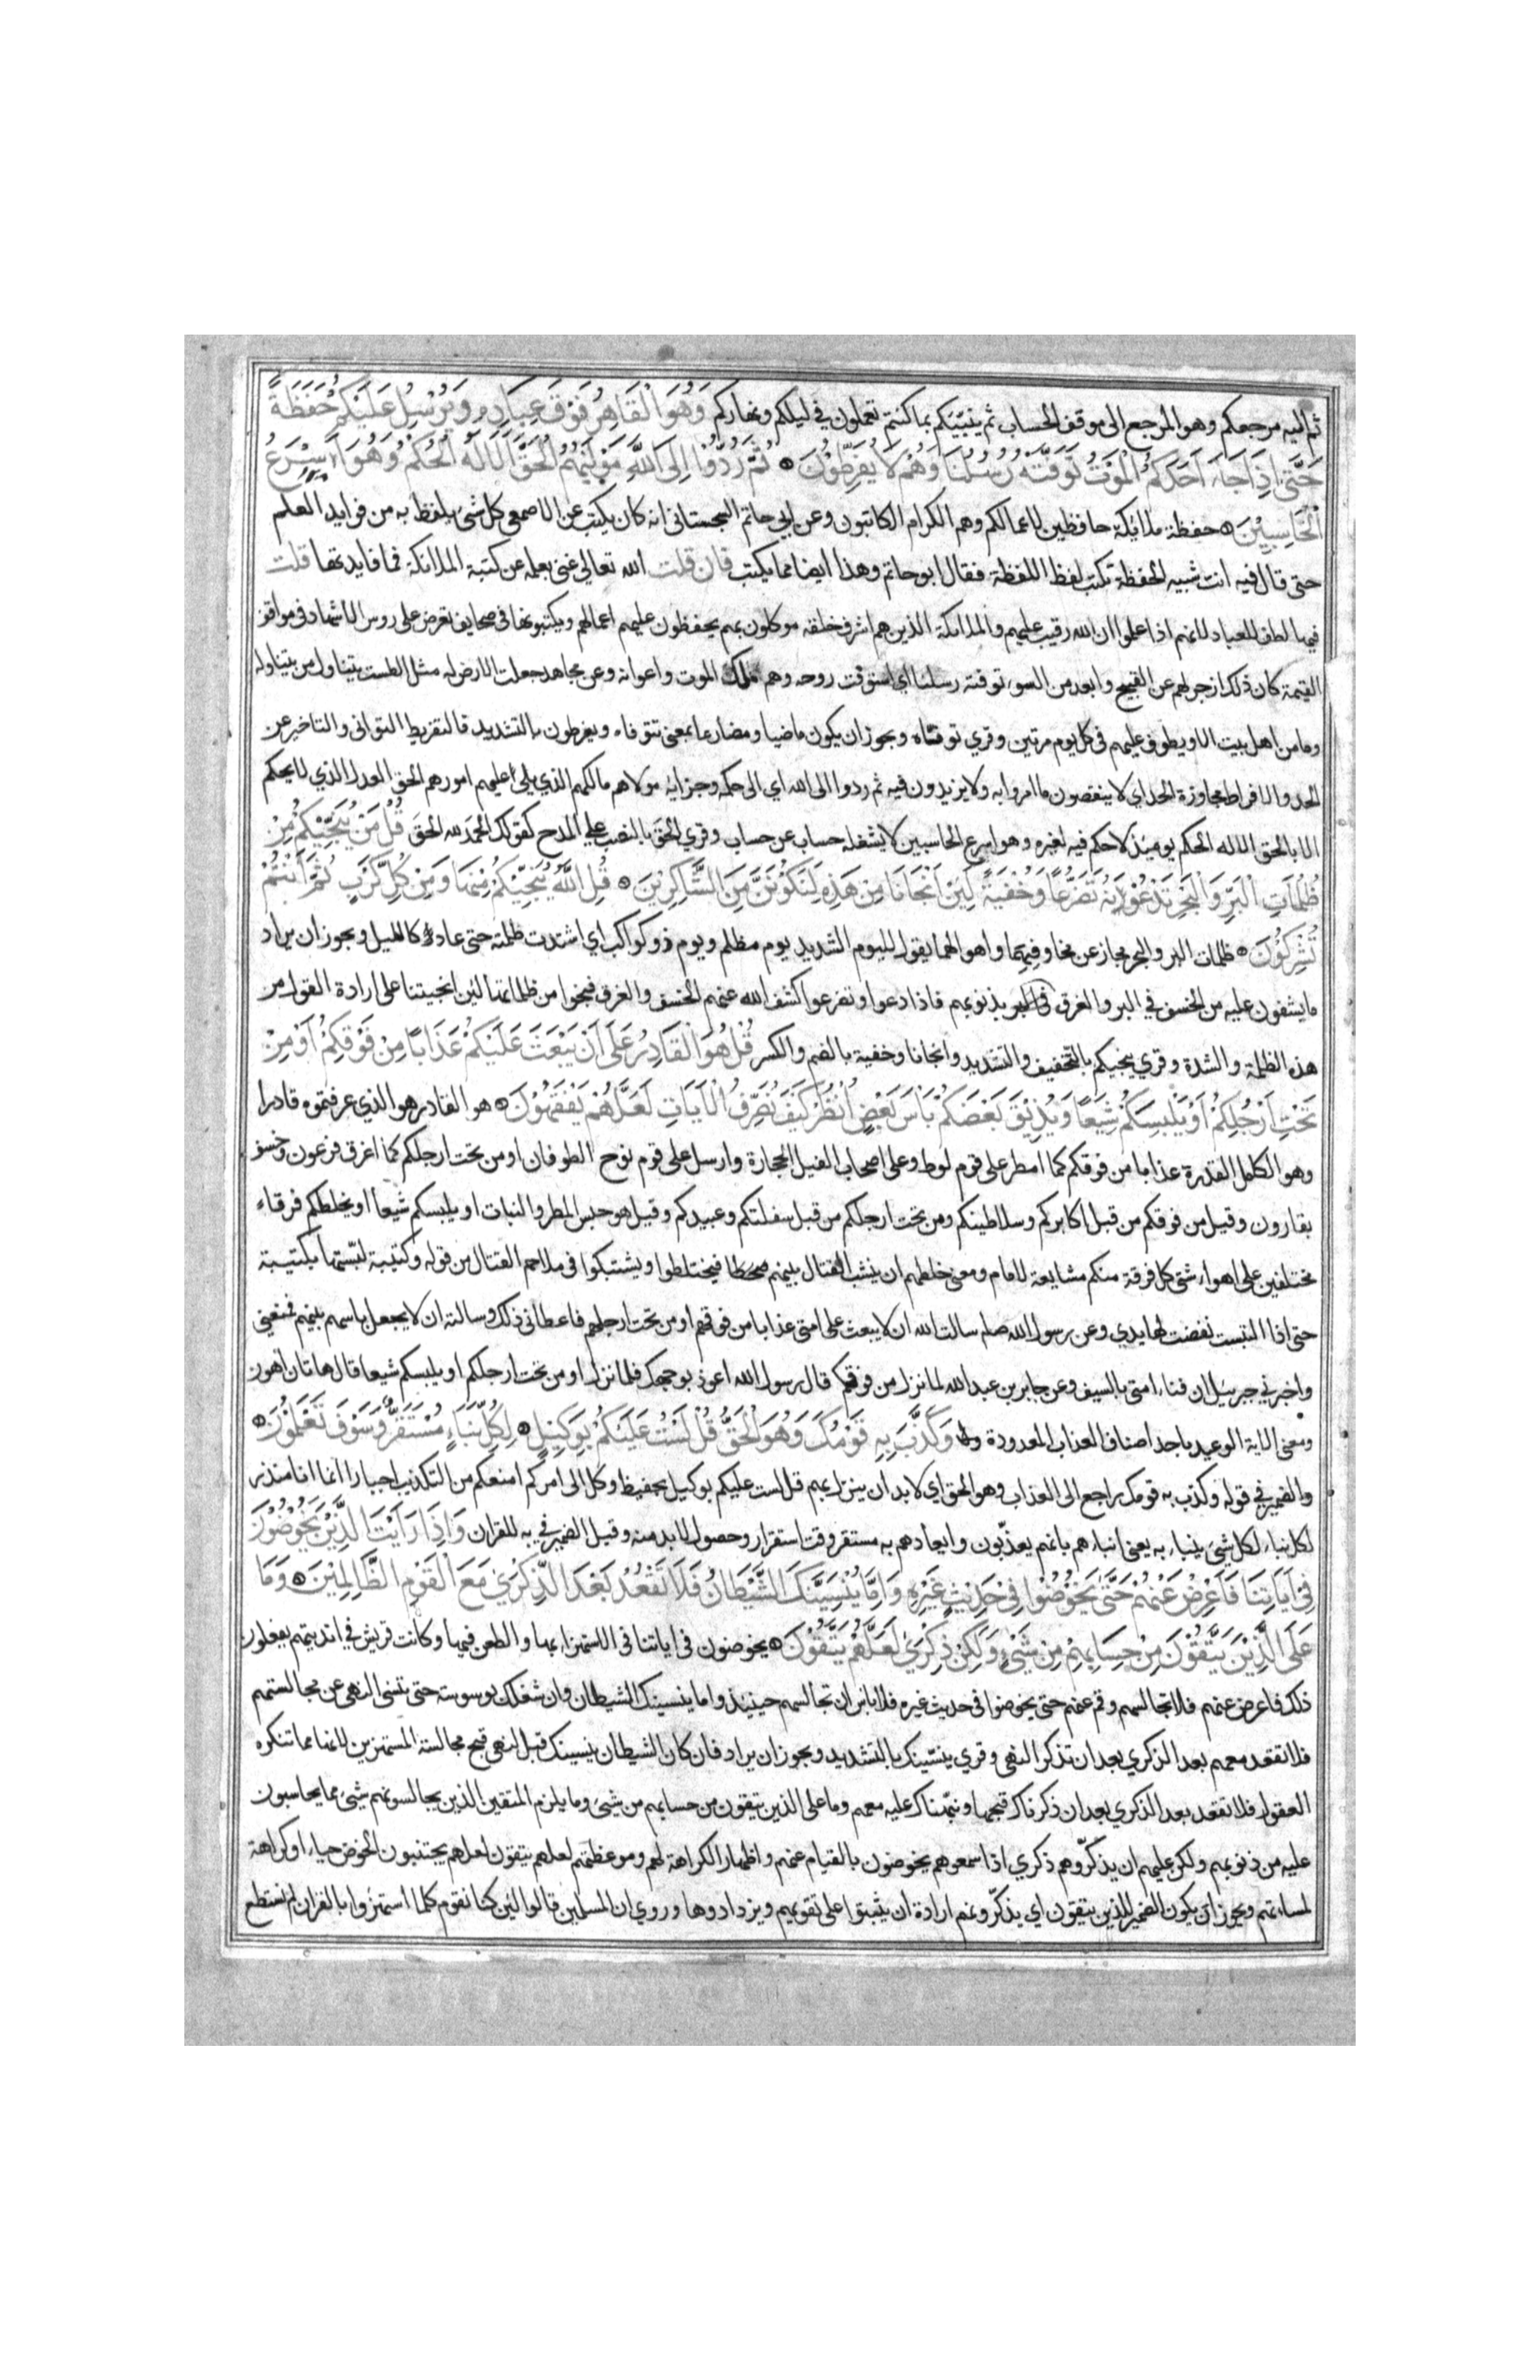 ثم اليه مرجعكم وهو المرجع الى موقف الحساب ثم ينبّيكم بما كنتم تعملون في ليلكم ونهاركم وَهُوَ الْقَاهِرُ فَوْقَ عِبَادِهِ وَيُرْسِلُ عَلَيْكُمْ حَفَظَةً
حَتَّى اِذَا جَاءَ اَحَدَكُمُ الْمَوْتُ تَوَفَّتْهُ رُسُلُنَا وَهُمْ لَا يُفَرِّطُونَ ثُمَّ رُدُّوا اِلَى اللَّهِ مَوْلَيهُمُ الْحَقِّ اَلَا لَهُ الْحُكْمُ وَهُوَ اَسْرَعُ
الْحَاسِبِيْنَ حفظة ملائكة حافظين لاعمالكم وهم الكرام الكاتبون وعن ابي حاتم السجستاني انه كان يكتب عن الاصمعي كل شئ يلفظ به من فوايد العلم
حتى قال فيه انت شبيه الحفظة تكتب لفظ اللفظة فقال ابو حاتم وهذا ايضا مما يكتب فان قلت الله تعالى غني بعلمه عن كتبة الملائكة فما فايدتها قلت
فيها لطف للعباد لانهم اذا علموا ان الله رقيب عليهم والملائكة الذين هم اشرف خلقه موكلون بهم يحفظون عليهم اعمالهم ويكتبونها في صحايف تعرض على روس الاشهاد في مواقف
القيمة كان ذلك ازجر لهم عن القبيح وابعد من السوء توفته رسلنا اي استوفت روحه وهم ملك الموت واعوانه وعن مجاهد جعلت الارض له مثل الطست يتناول من يتناوله
وما من اهل بيت الا ويطوف عليهم في كل يوم مرتين وقري توفتاه ويجوز ان يكون ماضيا ومضارعا بمعنى تتوفاه ويفرطون بالتشديد فالتفريط التواني والتاخير عن
الحد والافراط مجاوزة الحد اي لا ينقصون مما امروا به ولا يزيدون فيه ثم ردوا الى الله اي الى حكمه وجزايه مولاهم مالكهم الذي يلي عليهم امورهم الحق العدل الذي لا يحكم
الا بالحق الا له الحكم يوميذ لا حكم فيه لغيره وهو اسرع الحاسبين لا يشغله حساب عن حساب وقري الحق بالنصب على المدح كقولك الحمد لله الحقَ قُلْ مَنْ يُنَجِّيْكُمْ مِنْ
ظُلُمَاتِ الْبَرِّ وَالْبَحْرِ تَدْعُوْنَهُ تَضَرُّعًا وَخُفْيَةً لَئِنْ اَنْجَانَا مِنْ هَذِهِ لَنَكُوْنَنَّ مِنَ الشَّاكِرِيْنَ قُلِ اللَّهُ يُنَجِّيْكُمْ مِنْهَا وَمِنْ كُلِّ كَرْبٍ ثُمَّ اَنْتُمْ
تُشْرِكُوْنَ ظلمات البر والبحر مجاز عن مخاوفهما واهوالهما يقول لليوم الشديد يوم مظلم ويوم ذو كواكب اي اشتدت ظلمته حتى عاد كالليل ويجوز ان يراد
ما يشفون عليه من الخسف في البر والغرق في البحر بذنوبهم فاذا دعوا وتضرعوا كشف الله عنهم الخسف والغرق فنجوا من ظلماتها لئن انجيتنا على ارادة القول من
هذه الظلمة والشدة وقري ينجيكم بالتخفيف والتشديد وانجانا وخفية بالضم والكسر قُلْ هُوَ الْقَادِرُ عَلَى اَنْ يَبْعَثَ عَلَيْكُمْ عَذَابًا مِنْ فَوْقِكُمْ اَوْ مِنْ
تَحْتِ اَرْجُلِكُمْ اَوْ يَلْبِسَكُمْ شِيَعًا وَيُذِيْقَ بَعْضَكُمْ بَاْسَ بَعْضٍ اُنْظُرْ كَيْفَ نُصَرِّفُ الْآيَاتِ لَعَلَّهُمْ يَفْقَهُوْنَ هو القادر هو الذي عرفتموه قادرا
وهو الكامل القدرة عذابا من فوقكم كما امطر على قوم لوط وعلى اصحاب الفيل الحجارة وارسل على قوم نوح الطوفان او من تحت ارجلكم كما اغرق فرعون وخسف
بقارون وقيل من فوقكم من قبل اكابركم وسلاطينكم ومن تحت ارجلكم من قبل سفلتكم وعبيدكم وقيل هو حبس المطر والنبات او يلبسكم شيعا او يخلطكم فرقاء
مختلفين على اهواء شتى كل فرقة منكم مشايعة لامام ومعنى خلطهم ان ينشب القتال بينهم فيختلطوا ويشتبكوا في ملاحم القتال من قوله وكتيبة لبّستها بكتيبة
حتى اذا التبست نفضت لها يدي وعن رسول الله صلم سالت الله ان لا يبعث على امتي عذابا من فوقهم او من تحت ارجلهم فاعطاني ذلك وسالته ان لا يجعل باسهم بينهم فمنعني
واخبرني جبريل ان فناء امتي بالسيف وعن جابر بن عبد الله لما نزل من فوقكم قال رسول الله اعوذ بوجهك فلما نزل او من تحت ارجلكم او يلبسكم شيعا قال هاتان اهون
ومعنى الاية الوعيد باحد اصناف العذاب المعدودة وَكَذَّبَ بِهِ قَوْمُكَ وَهُوَ الْحَقُّ قُلْ لَسْتُ عَلَيْكُمْ بِوَكِيْلٍ لِكُلِّ نَبَاءٍ مُسْتَقَرٌّ وَسَوْفَ تَعْلَمُوْنَ
والضمير في قوله وكذب به قومك راجع الى العذاب وهو الحق اي لا بد ان ينزل بهم قل لست عليكم بوكيل بحفيظ وكل الى امركم امنعكم من التكذيب اجبارا انما انا منذر
لكل نباء لكل شئ ينباء به يعني انباءهم بانهم يعذّبون وايعادهم به مستقر وقت استقرار وحصول لا بد منه وقيل الضمير في به للقران وَاِذَا رَاَيْتَ الَّذِيْنَ يَخُوْضُوْنَ
فِيْ اَيَاتِنَا فَاَعْرِضْ عَنْهُمْ حَتَّى يَخُوْضُوْا فِيْ حَدِيْثٍ غَيْرِهِ وَاِمَّا يُنْسِيَنَّكَ الشَّيْطَانُ فَلَا تَقْعُدْ بَعْدَ الذِّكْرَيْ مَعَ الْقَوْمِ الظَّالِمِيْنَ وَمَا
عَلَى الَّذِيْنَ يَتَّقُوْنَ مِنْ حِسَابِهِمْ مِنْ شَيْءٍ وَلَكِنْ ذِكْرَيْ لَعَلَّهُمْ يَتَّقُوْنَ يخوضون في اياتنا في الاستهزاء بها والطعن فيها وكانت قريش في انديتهم يفعلون
ذلك فاعرض عنهم فلا تجالسهم وقم عنهم حتى يخوضوا في حديث غيره فلا باس ان تجالسهم حينيذ واما ينسينك الشيطان وان شغلك بوسوسته حتى تنسى النهي عن مجالستهم
فلا تقعد معهم بعد الذكري بعد ان تذكر النهي وقري ينسّينك بالتشديد ويجوز ان يراد فان كان الشيطان ينسينك قبل النهي قبح مجالسة المستهزين لانها مما تنكره
العقول فلا تقعد بعد الذكري بعد ان ذكرناك قبحها ونبّهناك عليه معهم وما على الذين يتقون من حسابهم من شئ وما يلزم المتقين الذين يجالسونهم شئ مما يحاسبون
عليه من ذنوبهم ولكن عليهم ان يذكّروهم ذكري اذا سمعوهم يخوضون بالقيام عنهم واظهار الكراهة لهم وموعظتهم لعلهم يتقون لعلهم يجتنبون الخوض حياء او كراهة
لمساءتهم ويجوز ان يكون الضمير للذين يتقون اي يذكّرونهم ارادة ان يثبتوا على تقويهم ويزدادوها وروي ان المسلمين قالوا لئن كنا نقوم كلما استهزوا بالقران لم نستطع